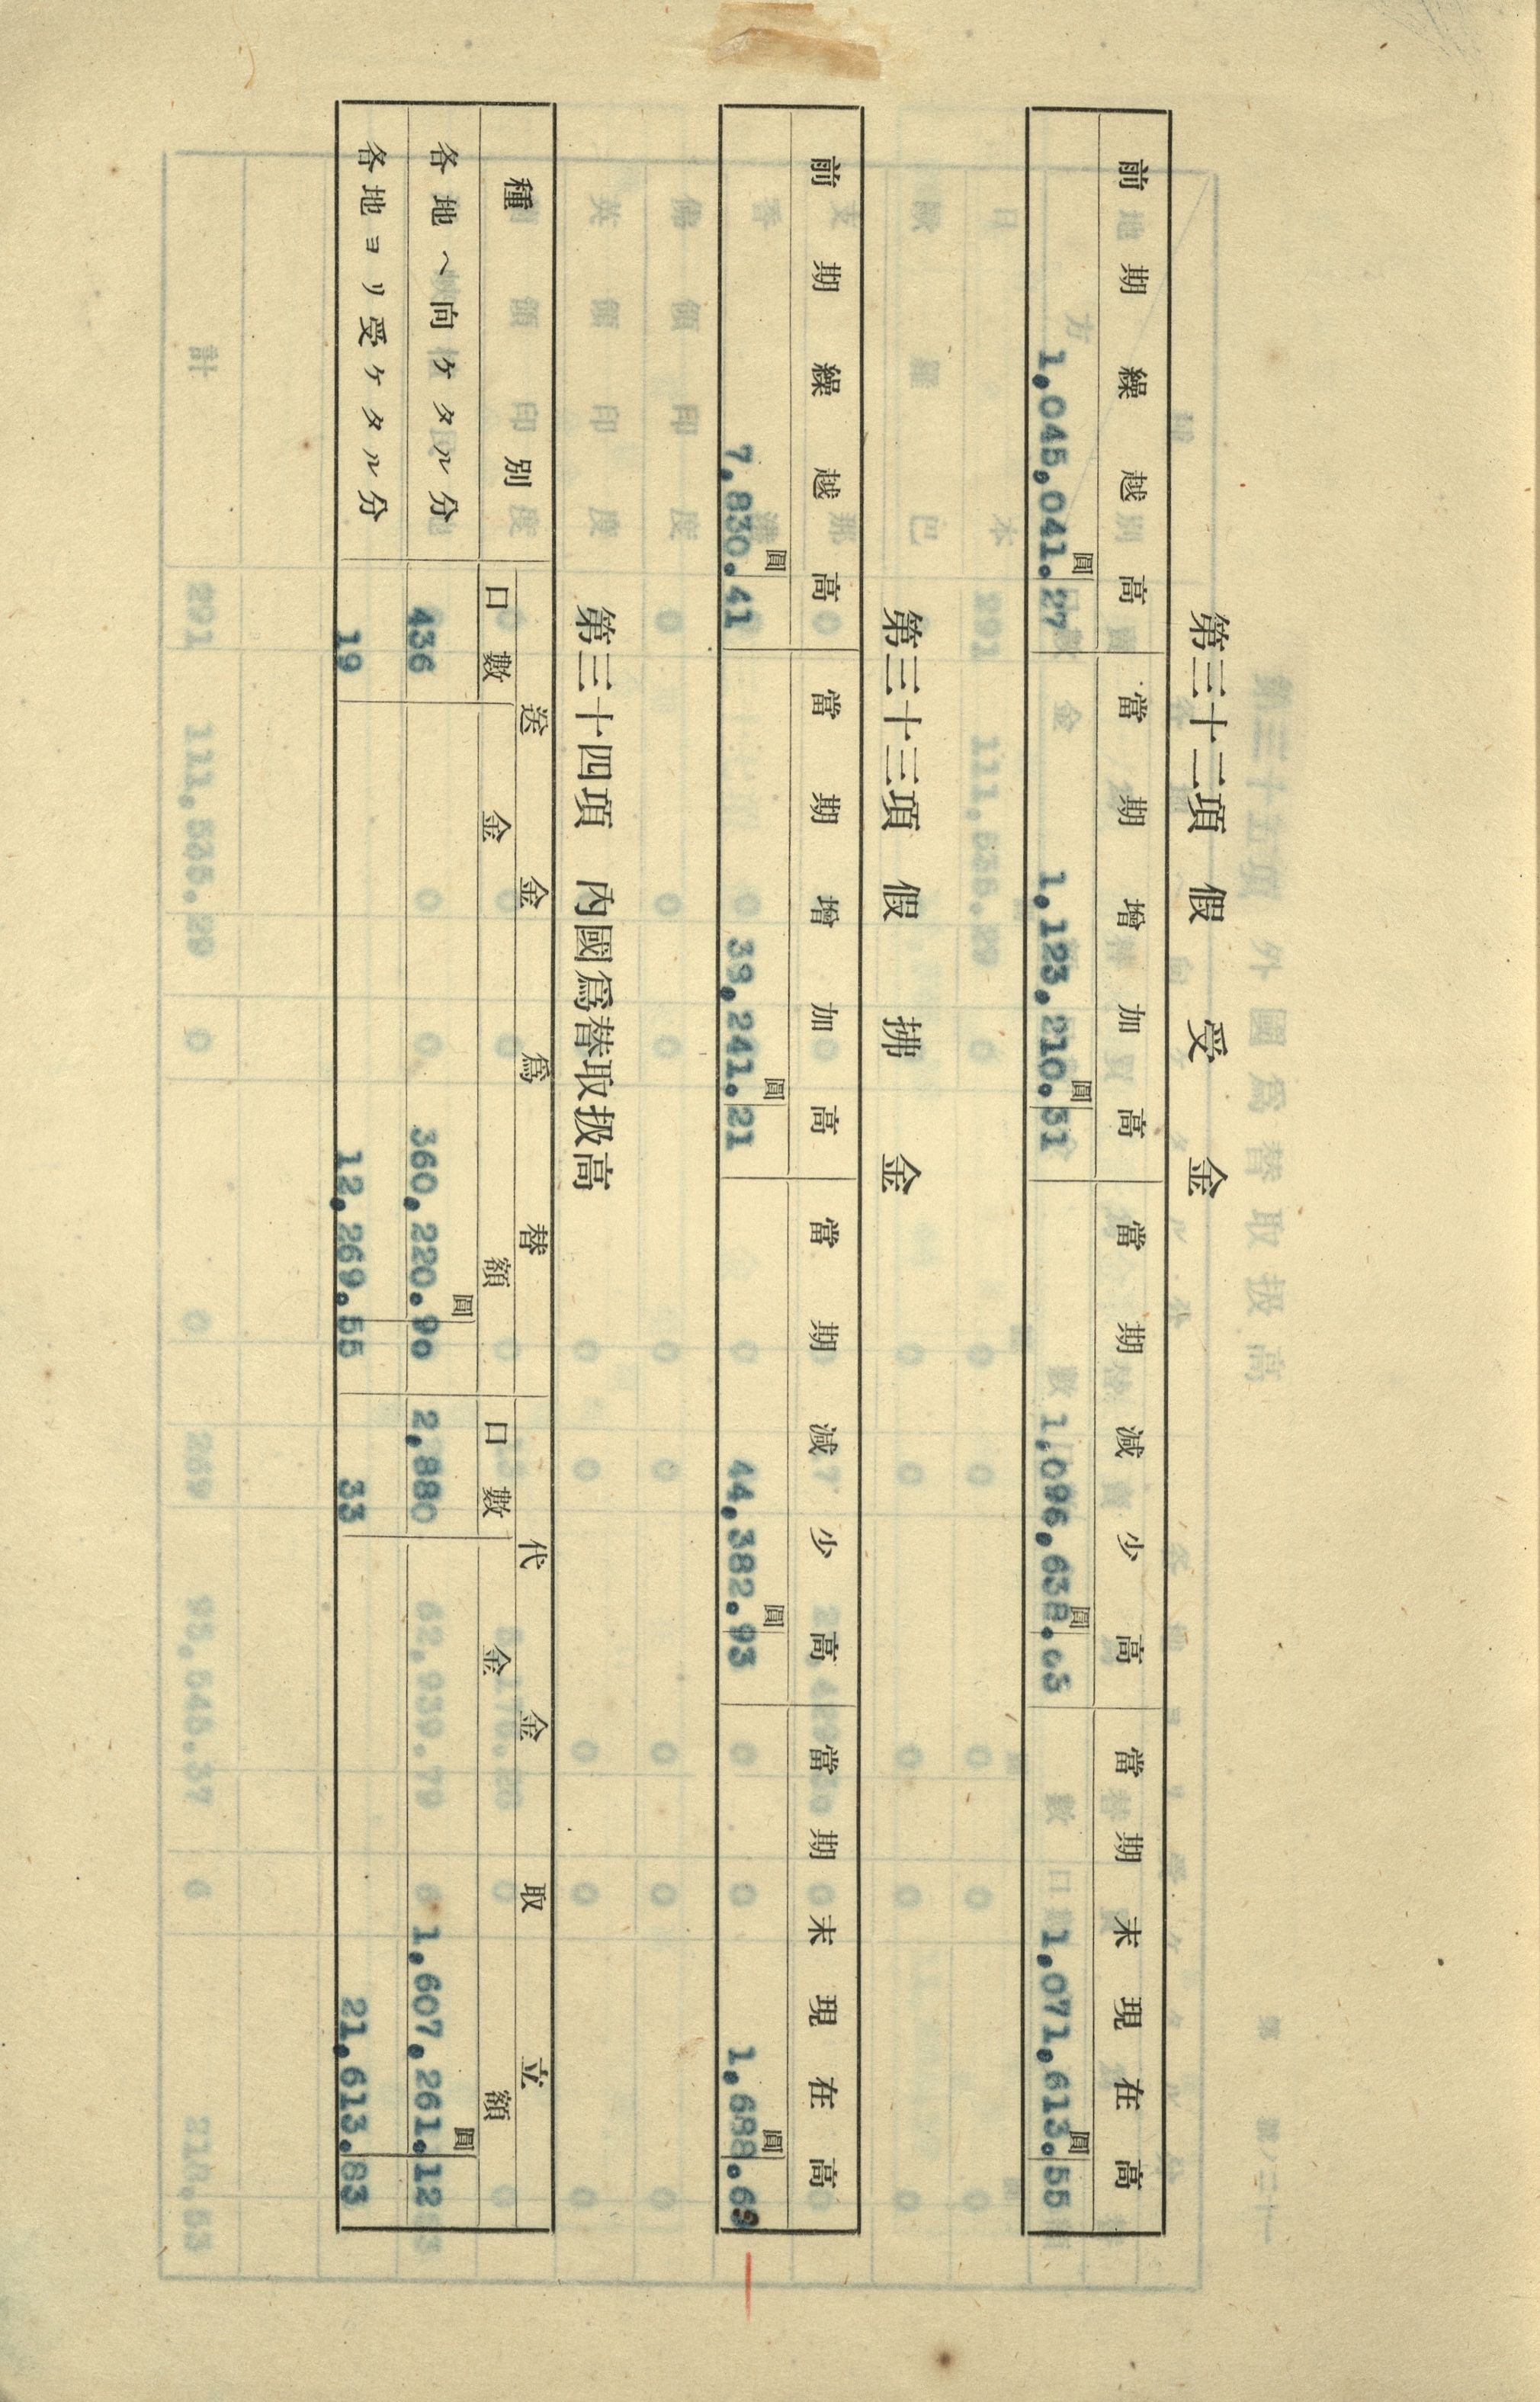 第三十二項 假受金
前期繰越高 當期增加高 當期減少高 當期末現在高
圓 圓 圓 圓
1,045,041.27 1,123,210.31 1,096,638.03 1,071,613.55
第三十三項 假拂金
前期繰越高 當期增加高 當期減少高 當期末現在高
圓 圓 圓 圓
7,830.41 38,241.21 44,382.93 1,688.69
第三十四項 內國爲替取扱高
種別 送金爲替 代金取立
口數 金額 口數 金額
圓 圓
各地ヘ向ケタル分 436 360,220.90 2,880 1,607,261.12
各地ヨリ受ケタル分 19 12,269.55 33 21,613.83